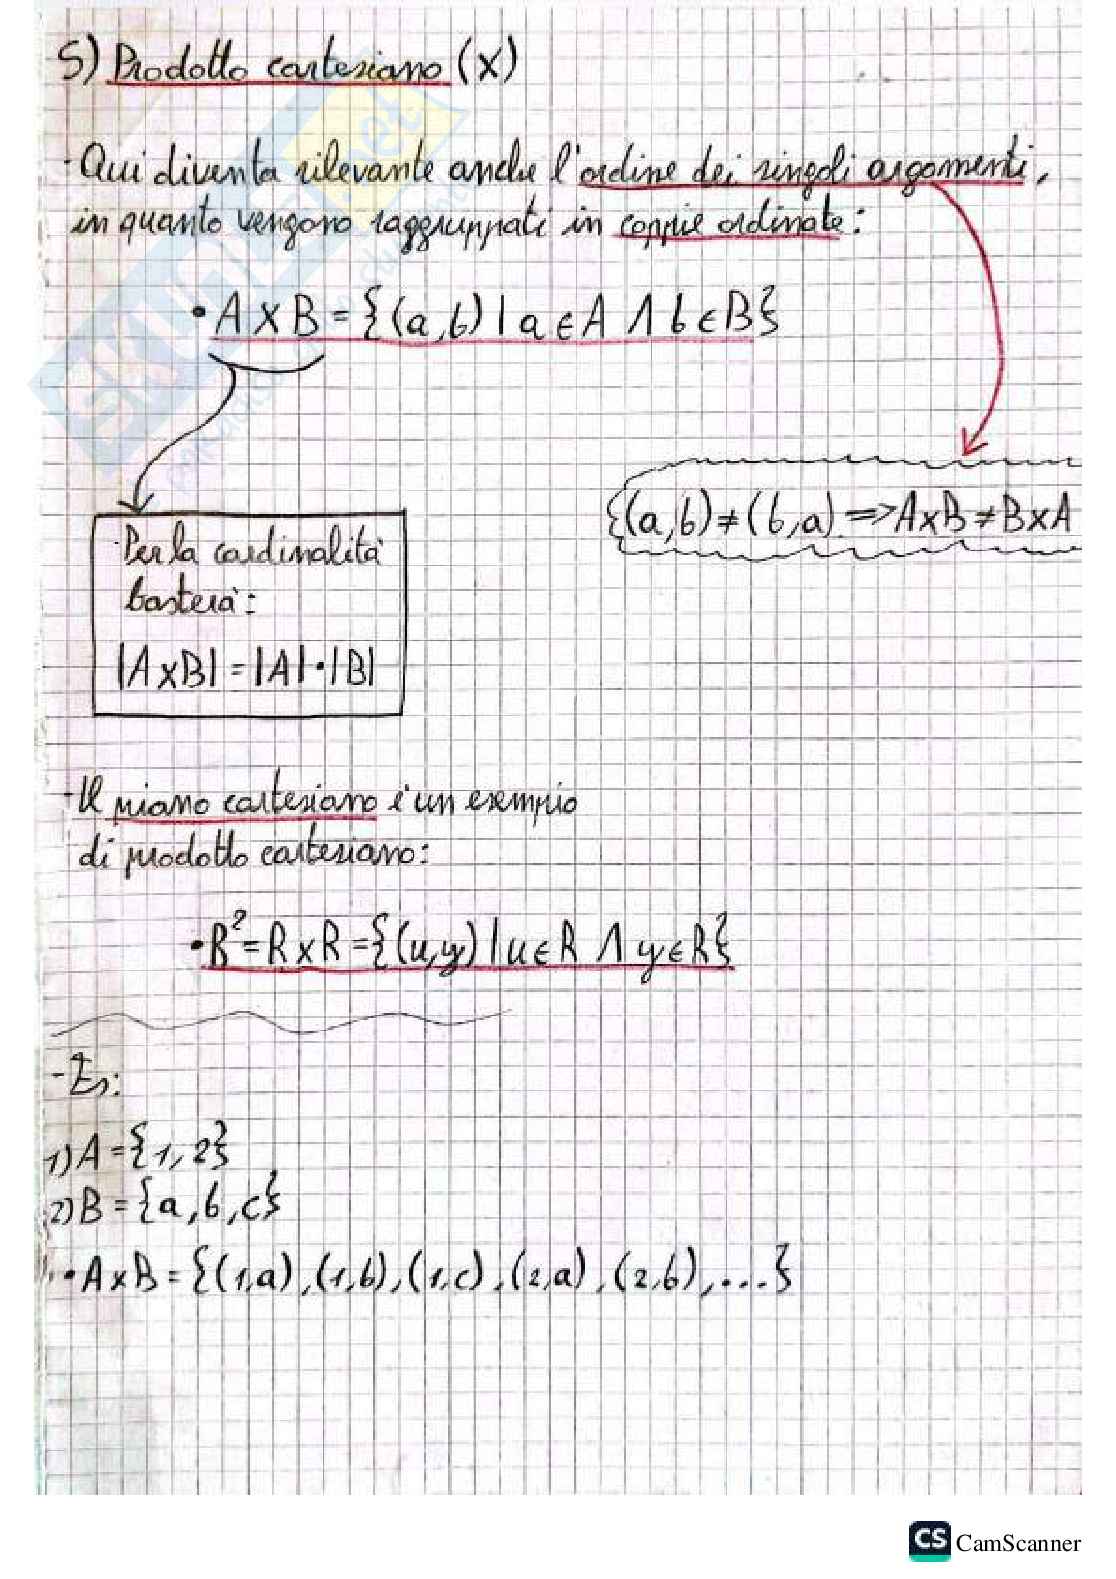 5) Prodotto cartesiano (x)
- Qui diventa rilevante anche l'ordine dei singoli argomenti,
in quanto vengono raggruppati in coppie ordinate:
• A x B = {(a,b) | a ∈ A ∧ b ∈ B}
{(a,b) ≠ (b,a) => A x B ≠ B x A
- Per la cardinalità
basterà:
|A x B| = |A| • |B|
- Il piano cartesiano è un esempio
di prodotto cartesiano:
• R² = R x R = {(u,y) | u ∈ R ∧ y ∈ R}
- Es:
1) A = {1, 2}
2) B = {a, b, c}
• A x B = {(1,a), (1,b), (1,c), (2,a), (2,b), ...}
CS CamScanner